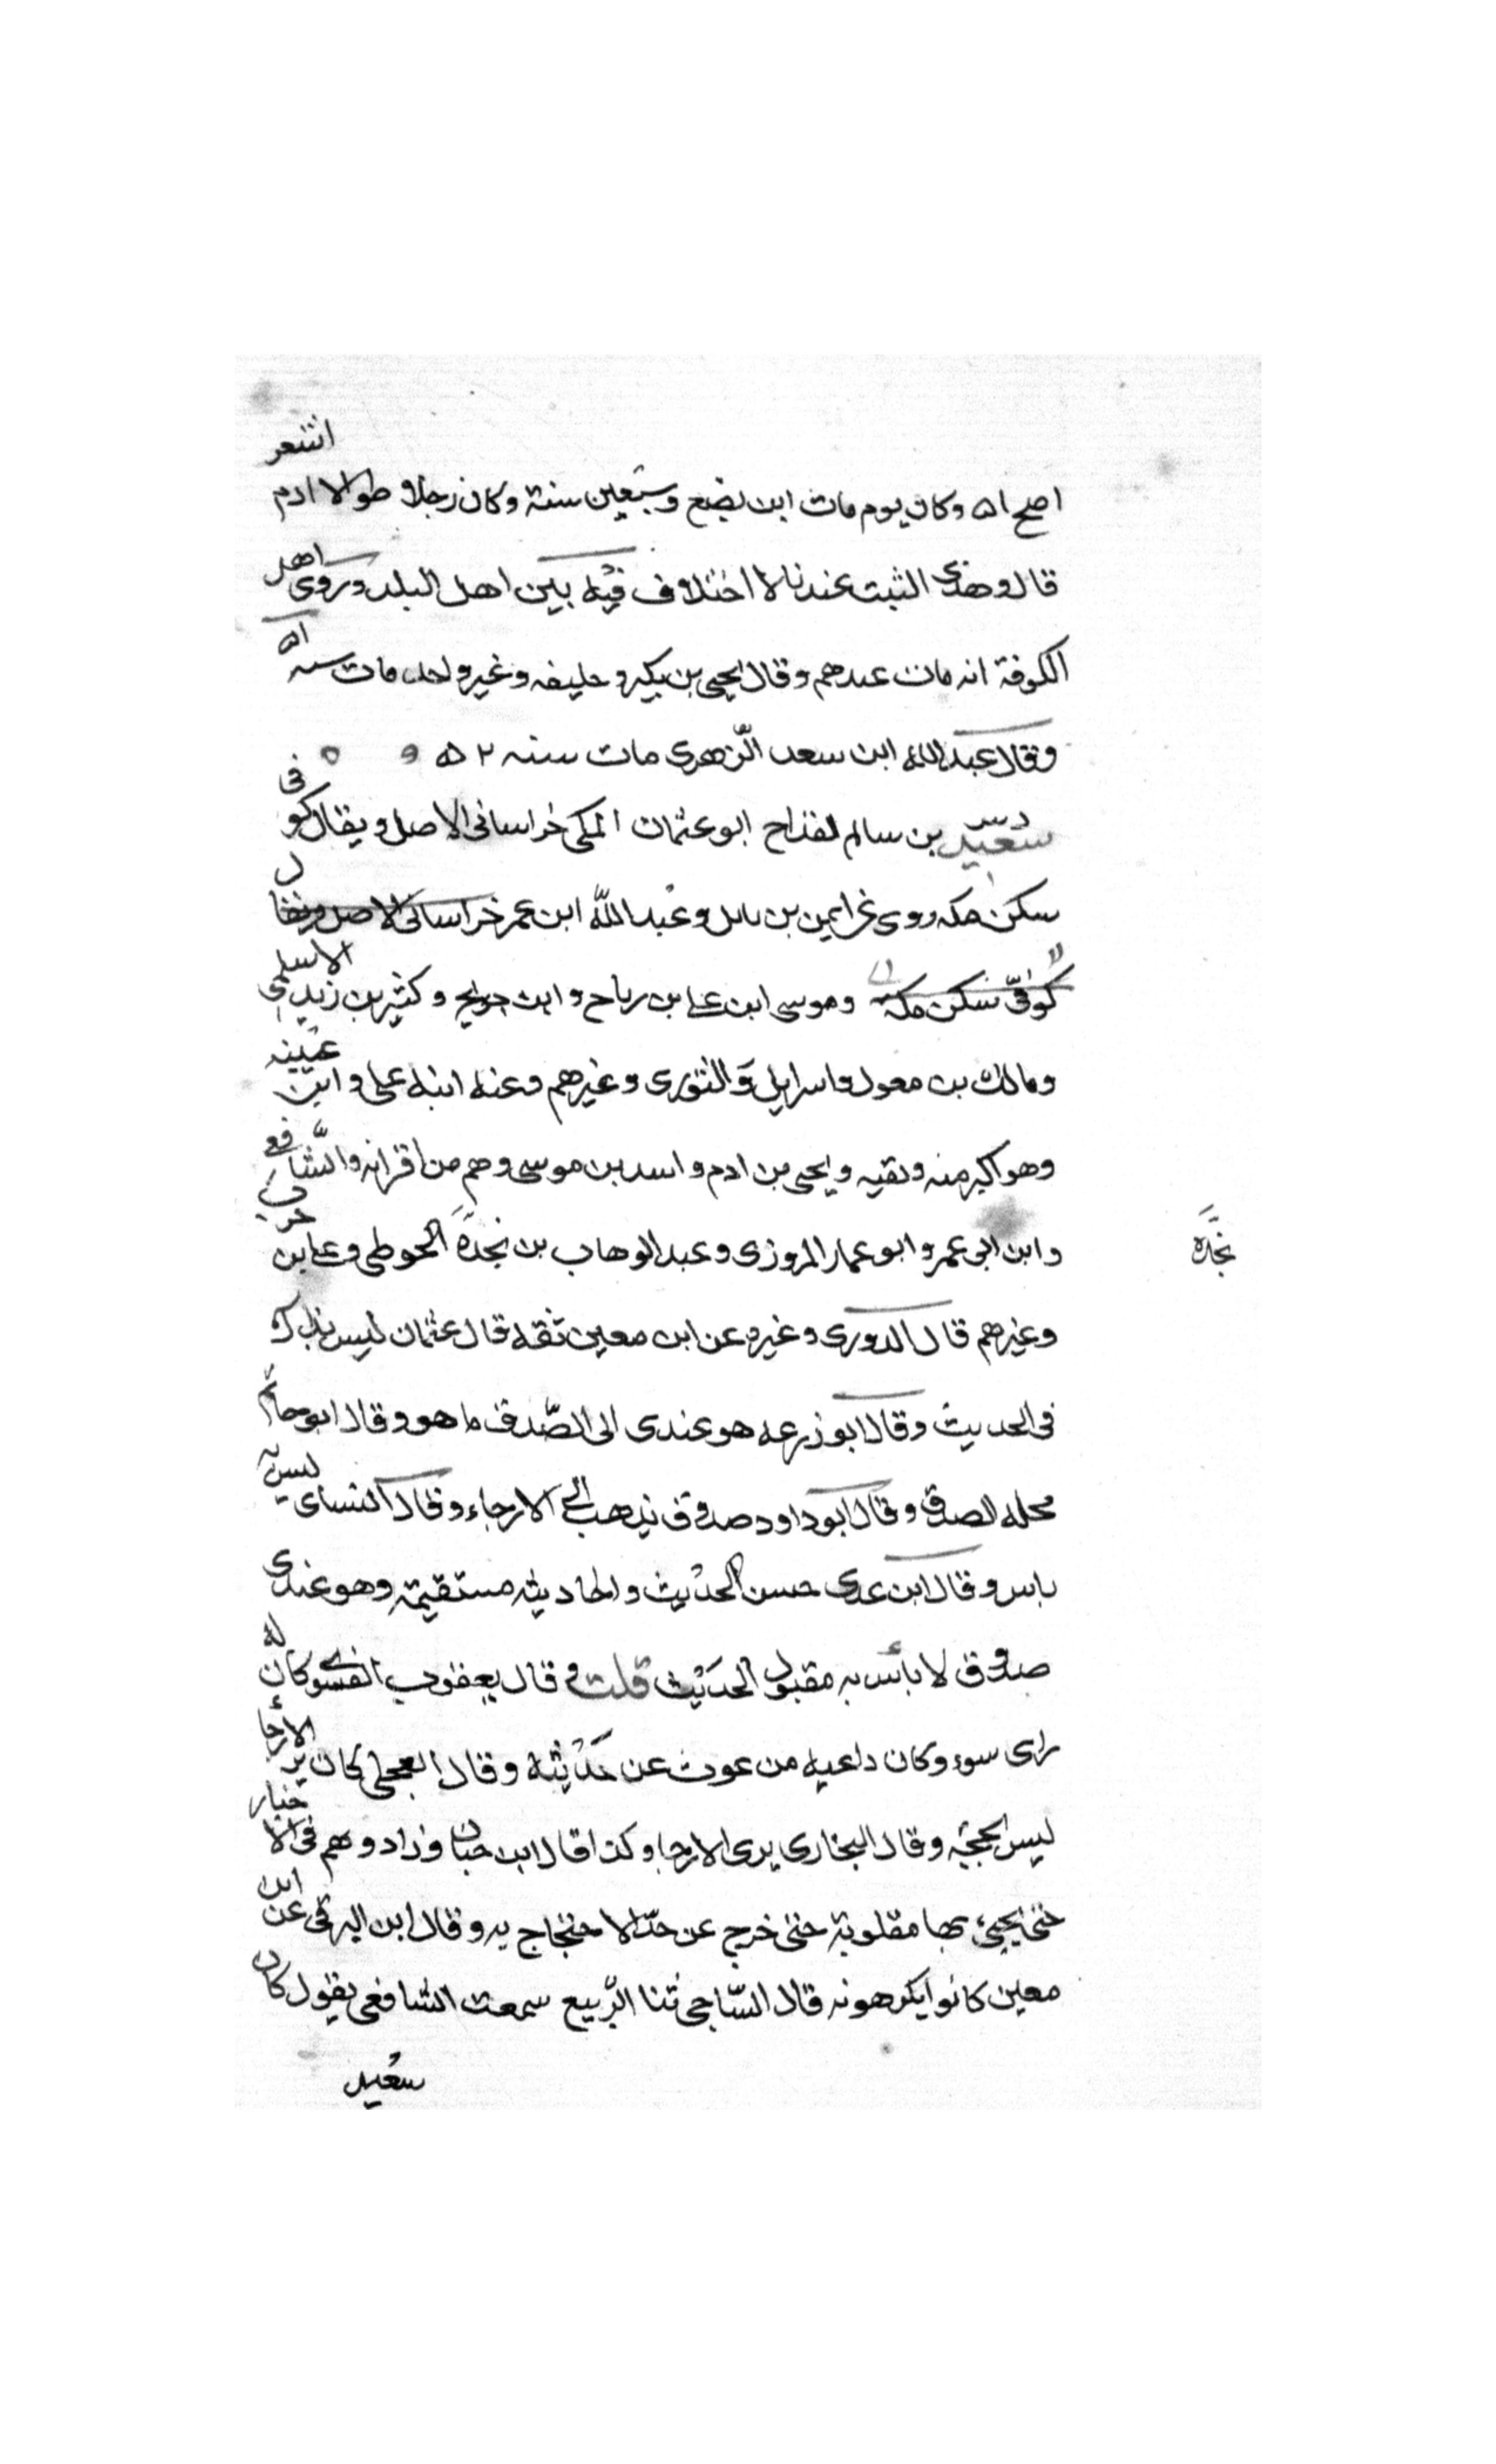 اصح ۵۱ وكان يوم مات ابن بضع وسبعين سنة وكان رجلا طوالا ادم اشعر
قال وهذا الثبت عندنا لا اختلاف فيه بين اهل البلد وروى اهل
الكوفة انه مات عندهم وقال يحيى بن بكير وخليفه وغير واحد مات سنه ۵۱
وقال عبيد الله ابن سعد الزهرى مات سنه ۵۲
د س سعيد بن سالم القداح ابو عثمان المكى خراسانى الاصل ويقال كوفى
سكن مكه روى عن ايمن بن نابل وعبد الله ابن عمر خراسانى الاصل ويقال
كوفى سكن مكة وموسى ابن على بن رباح وابن جريج وكثير بن زيد الاسلمى
ومالك بن مغول واسرايل والثورى وغيرهم وعنه ابنه على وابن عيينه
وهو اكبر منه وبقيه ويحيى بن ادم واسد بن موسى وهم من اقرانه والشافعى
وابن ابى عمر وابو عمار المروزى وعبد الوهاب بن نجدة الحوطى وعلى بن حرب
نجدة
وغيرهم قال الدورى وغيره عن ابن معين ثقه قال عثمان ليس بذاك
فى الحديث وقال ابو زرعه هو عندى الى الصدق ما هو وقال ابو حاتم
محله الصدق وقال ابو داود صدوق يذهب الى الارجاء وقال النساى ليس به
باس وقال ابن عدى حسن الحديث واحاديثه مستقيمة وهو عندى
صدوق لا بأس به مقبول الحديث قلت وقال يعقوب الفسوى كان له
راى سوء وكان داعيه مرغوب عن حديثه وقال العجلى كان يرى الارجأ
ليس بحجة وقال البخارى يرى الارجا وكذا قال ابن حبان وزاد ويهم فى الاخبار
حتى يجيء بها مقلوبة حتى خرج عن حد الاحتجاج به وقال ابن البرقى عن ابن
معين كانوا يكرهونه قال الساجى ثنا الربيع سمعت الشافعى يقول كان
سعيد